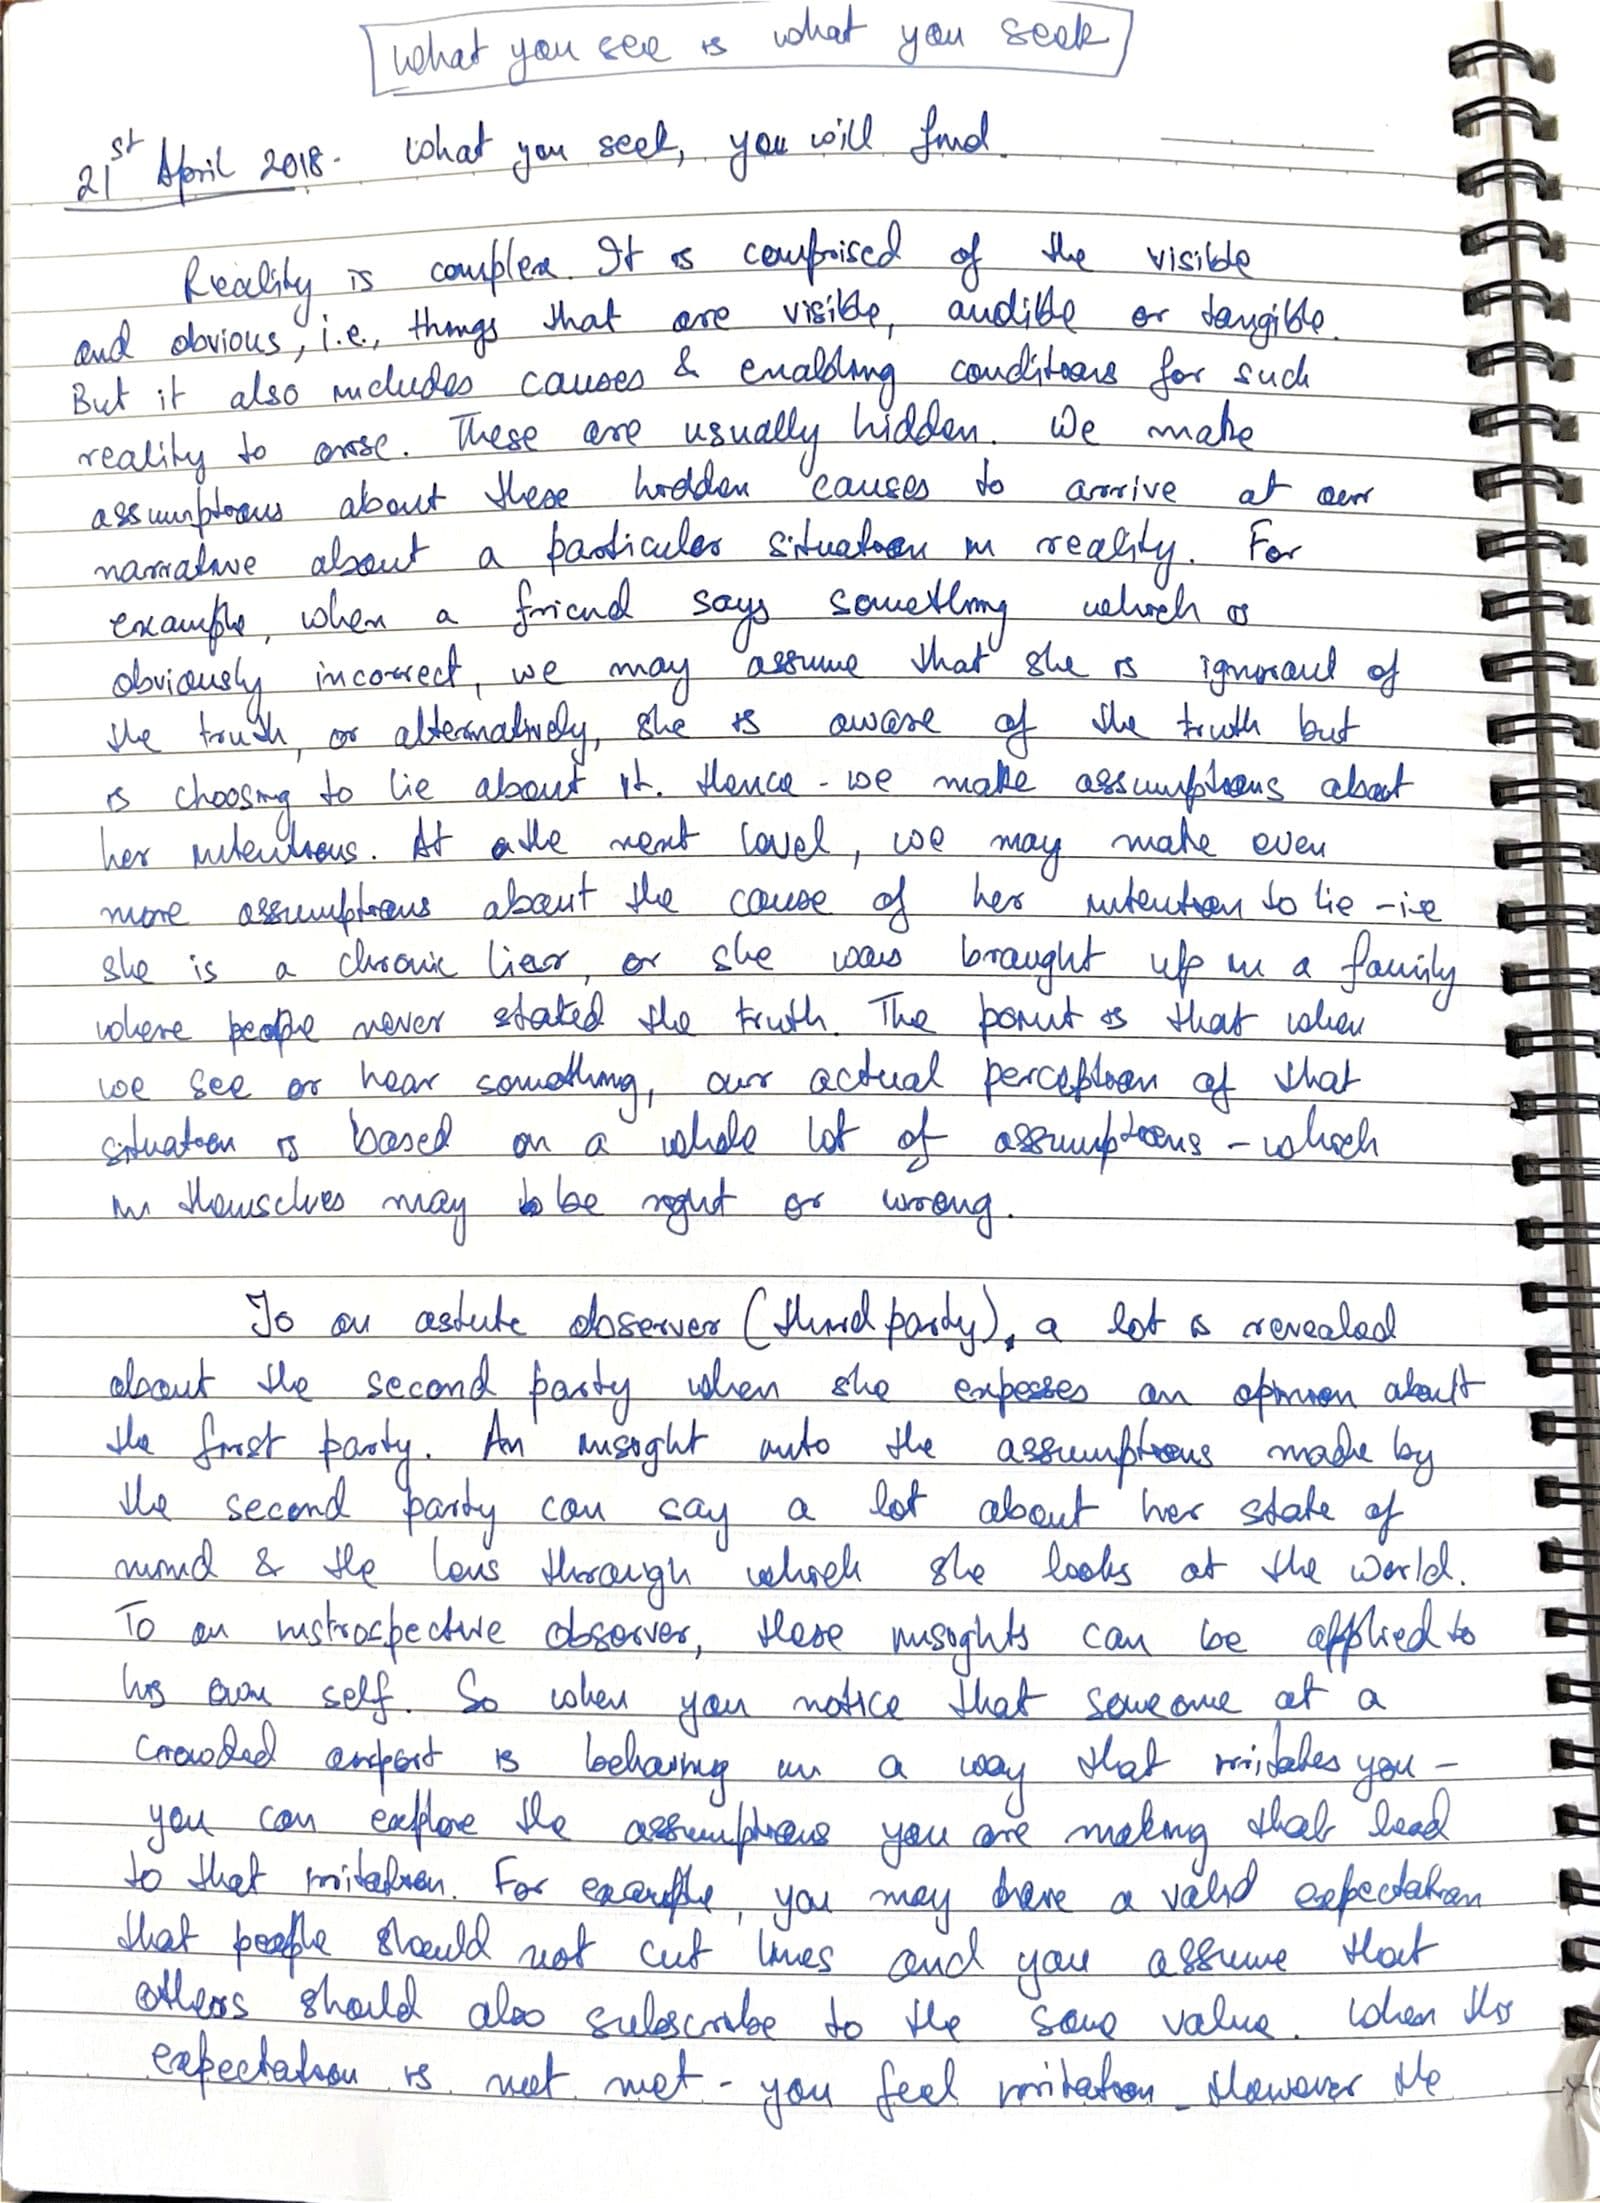 What you see is what you seek
21st April 2018. What you seek, you will find.
Reality is complex. It is comprised of the visible
and obvious, i.e., things that are visible, audible or tangible.
But it also includes causes & enabling conditions for such
reality to arise. These are usually hidden. We make
assumptions about these hidden causes to arrive at our
narrative about a particular situation in reality. For
example, when a friend says something which is
obviously incorrect, we may assume that she is ignorant of
the truth, or alternatively, she is aware of the truth but
is choosing to lie about it. Hence - we make assumptions about
her intentions. At the next level, we may make even
more assumptions about the cause of her intention to lie - i.e
she is a chronic liar, or she was brought up in a family
where people never stated the truth. The point is that when
we see or hear something, our actual perception of that
situation is based on a whole lot of assumptions - which
in themselves may be right or wrong.
To an astute observer (third party), a lot is revealed
about the second party when she expesses an opinion about
the first party. An insight into the assumptions made by
the second party can say a lot about her state of
mind & the lens through which she looks at the world.
To an instrospective observer, these insights can be applied to
his own self. So when you notice that someone at a
crowded airport is behaving in a way that irritates you -
you can explore the assumptions you are making that lead
to that irritation. For example, you may have a valid expectation
that people should not cut lines and you assume that
others should also subscribe to the same value. When this
expectation is not met - you feel irritation. However the